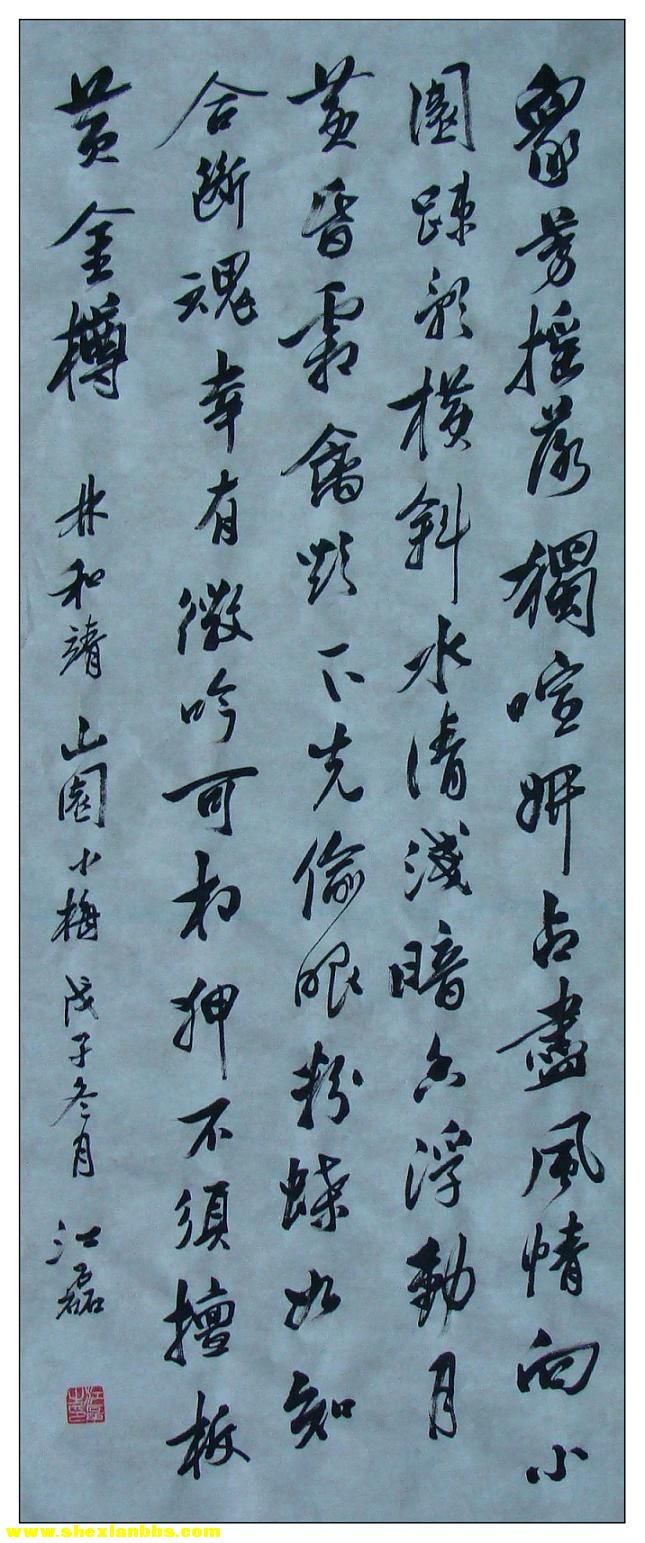 眾芳搖落獨喧妍占盡風情向小
園疎影橫斜水清淺暗香浮動月
黃昏霜禽欲下先偷眼粉蝶如知
合斷魂幸有微吟可相狎不須檀板
黃金樽 林和靖山園小梅戊子冬月 江磊
www.shexianbbs.com